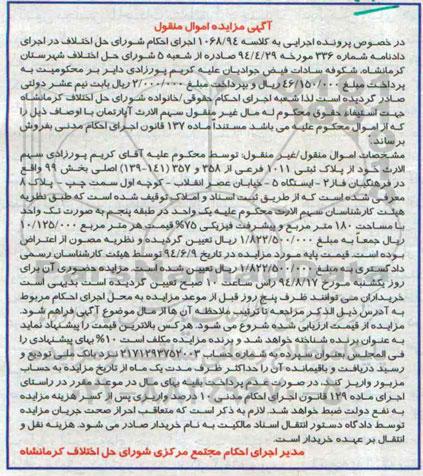 آگهی مزایده اموال منقول
در خصوص پرونده اجرایی به کلاسه ۱۰۶۸/۹۴ اجرای احکام شورای حل اختلاف در اجرای
دادنامه شماره ۳۳۶ مورخه ۹۴/۴/۲۹ صادره از شعبه ۵ شورای حل اختلاف شهرستان
کرمانشاه، شکوفه سادات فیض جوادیان علیه کریم پورزادی دایر بر محکومیت به
پرداخت مبلغ ۴۶/۱۵۰/۰۰۰ ریال و پرداخت مبلغ ۲/۰۰۰/۰۰۰ ریال بابت نیم عشر دولتی
صادر گردیده است لذا شعبه اجرای احکام حقوقی/خانواده شورای حل اختلاف کرمانشاه
جهت استیفاء حقوق محکوم له مال غیر منقول سهم الارث آپارتمان با اوصاف ذیل را
که از اموال محکوم علیه می باشد مستنداً ماده ۱۳۷ قانون اجرای احکام مدنی بفروش
برساند.
مشخصات اموال منقول/غیر منقول: توسط محکوم علیه آقای کریم پورزادی سهم
الارث خود از پلاک ثبتی ۱۰۱۱ فرعی از ۳۵۸ و ۳۵۷ (۱۴۱-۱۳۹) اصلی بخش ۹۹ واقع
در فرهنگیان فاز ۲ - ایستگاه ۵ - خیابان عصر انقلاب - کوچه اول سمت چپ - پلاک ۸
معرفی شده است که از طریق ثبت اسناد و املاک توقیف شده است که طبق نظریه
هیئت کارشناسان سهم الارث محکوم علیه یک واحد در طبقه پنجم به صورت تک واحد
با مساحت ۱۸۰ متر مربع و پیشرفت فیزیکی ۷۵٪ قیمت هر متر مربع ۱۰/۱۲۵/۰۰۰
ریال جمعاً به مبلغ ۱/۸۲۲/۵۰۰/۰۰۰ ریال تعیین گردیده و نظریه مصون از اعتراض
بوده است. قیمت پایه مورد مزایده در تاریخ ۹۴/۶/۹ توسط هیئت کارشناسان رسمی
دادگستری به مبلغ ۱/۸۲۲/۵۰۰/۰۰۰ ریال تعیین شده است. مزایده حضوری آن برای
روز یکشنبه مورخ ۹۴/۸/۱۷ راس ساعت ۱۰ صبح تعیین گردیده است بدیهی است
خریداران می توانند ظرف پنج روز قبل از موعد مزایده به محل اجرای احکام مربوط
به آدرس ذیل الذکر مراجعه تا ترتیب ملاحظه آن ها از مال موضوع آگهی فراهم شود.
مزایده از قیمت ارزیابی شده شروع می شود. هر کس بالاترین قیمت را پیشنهاد نماید
به عنوان برنده شناخته خواهد شد و برنده مزایده مکلف است ۱۰٪ بهای پیشنهادی را
فی المجلس بعنوان سپرده به شماره حساب ۲۱۷۱۲۹۳۷۵۲۰۰۳ نزد بانک ملی تودیع و
رسید دریافت و باقیمانده آن را حداکثر ظرف مدت یک ماه از تاریخ مزایده به حساب
مزبور واریز کند. در صورت عدم پرداخت بقیه بهای مال در موعد مقرر در راستای
اجرای ماده ۱۲۹ قانون اجرای احکام مدنی ۱۰ درصد واریزی پس از کسر هزینه مزایده
به نفع دولت ضبط خواهد شد. لازم به ذکر است که متعاقب احراز صحت جریان مزایده
توسط دادگاه دستور انتقال اسناد مالکیت به نام خریدار صادر می شود. هزینه نقل و
انتقال بر عهده خریدار است.
مدیر اجرای احکام مجتمع مرکزی شورای حل اختلاف کرمانشاه